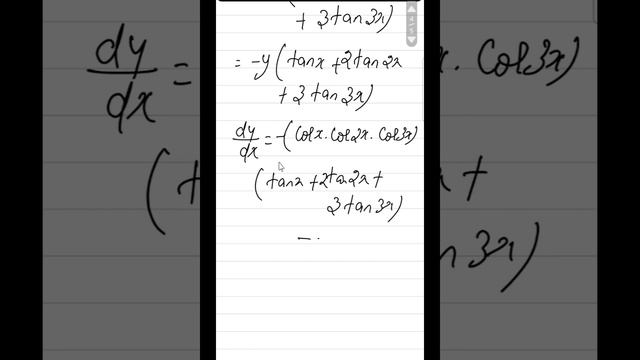 + 3 tan 3x)
= -y ( tanx + 2 tan 2x
+ 3 tan 3x)
dy/dx = -( Cosx . Cos2x . Cos3x)
( tanx + 2 tan 2x +
3 tan 3x)
dy/dx =
. Cos3x)
(t
x +
n 3x)